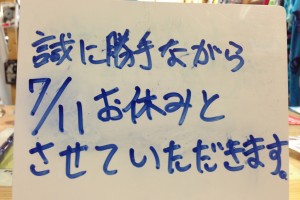 誠に勝手ながら
7/11お休みと
させていただきます。